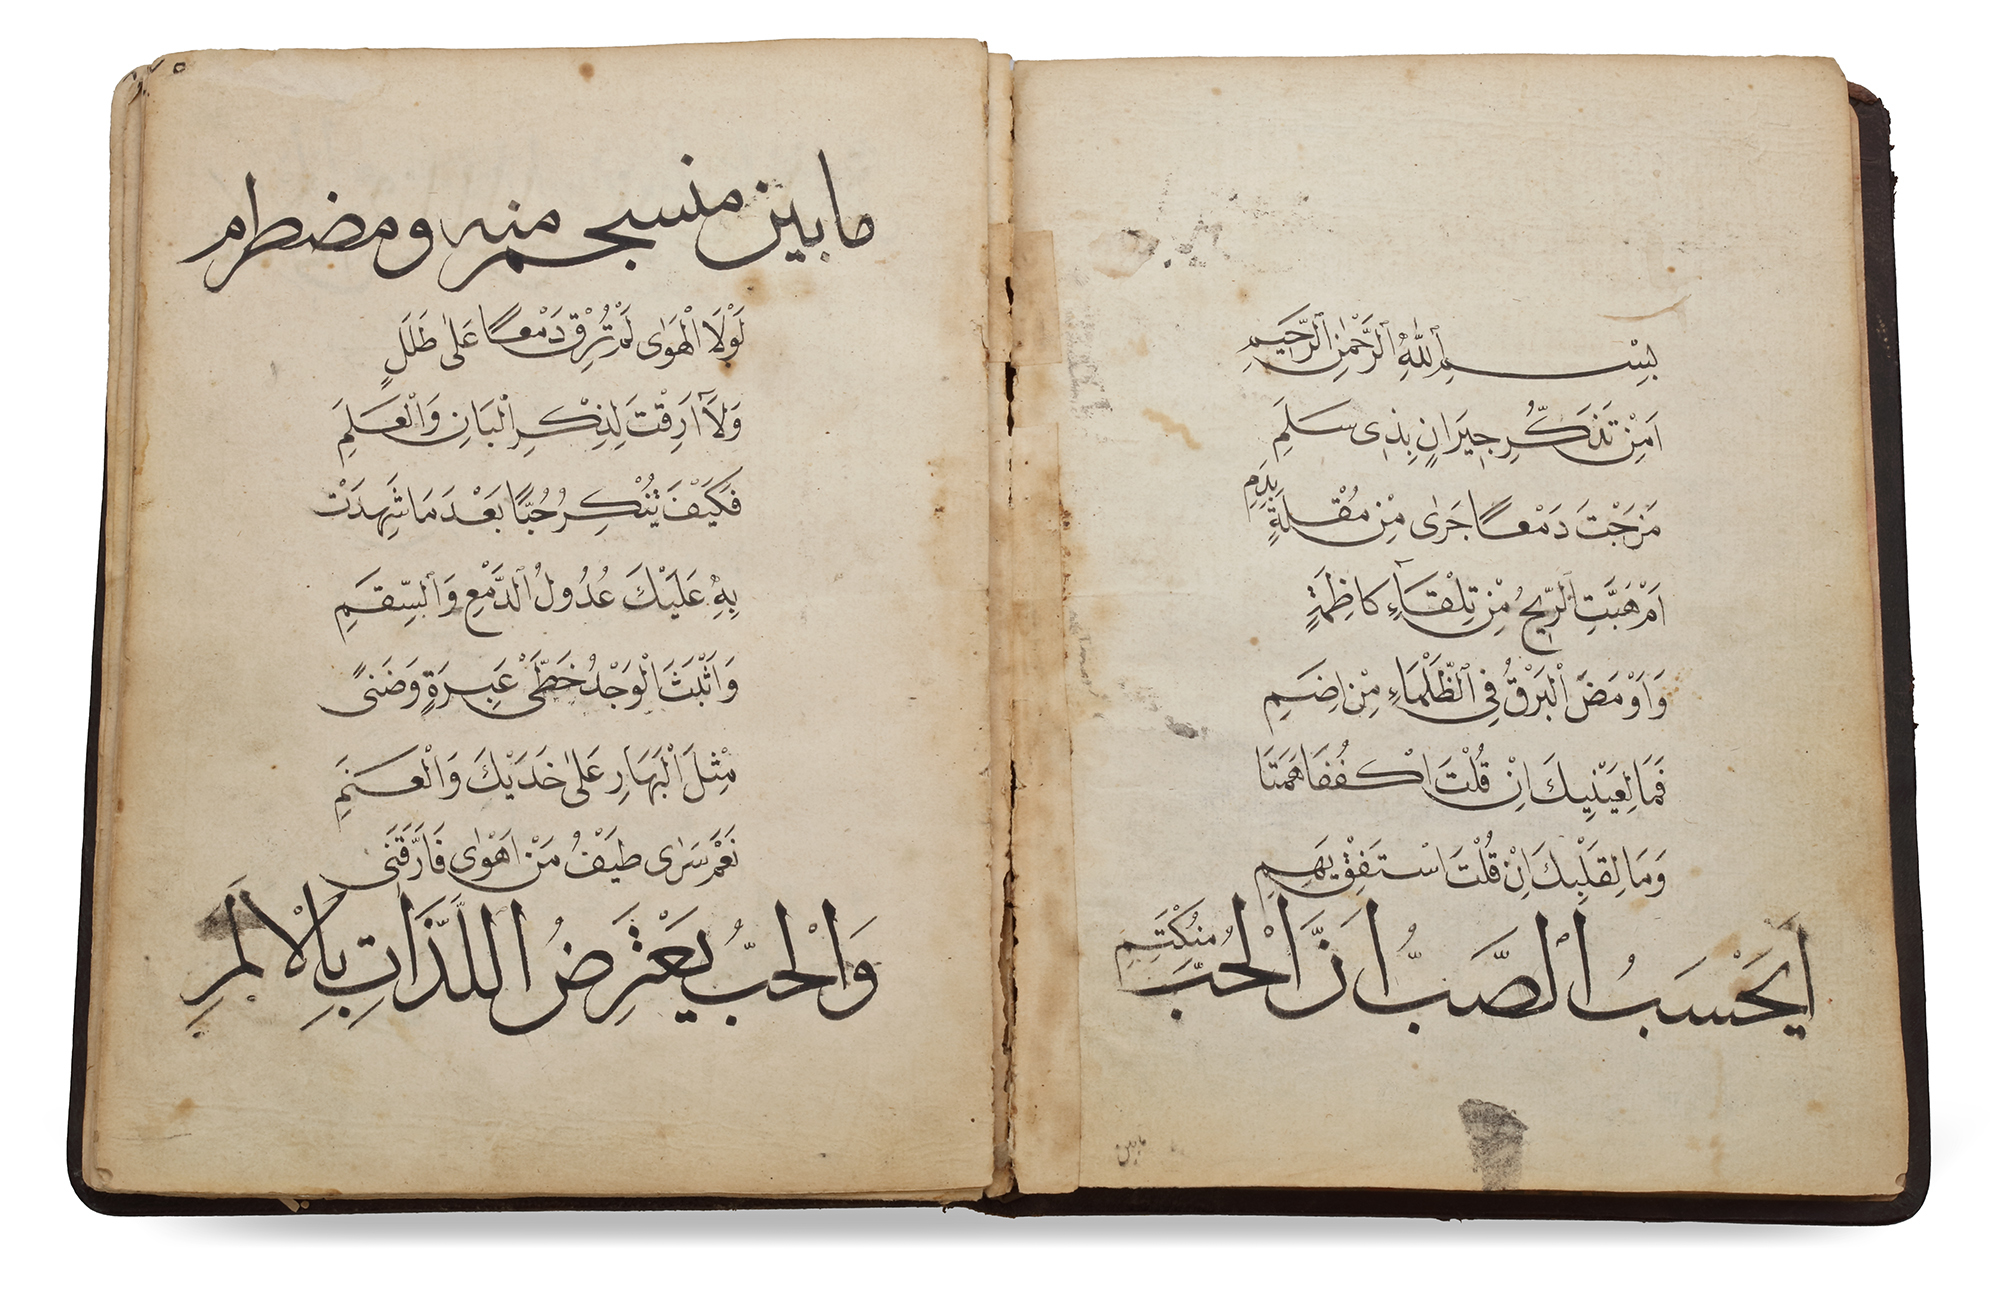 بِسْمِ ٱللّٰهِ ٱلرَّحْمٰنِ ٱلرَّحِيمِ
اَمِنْ تَذَكُّرِ جِيرَانٍ بِذِى سَلَمِ
مَزَجْتَ دَمْعًا جَرٰى مِنْ مُقْلَةٍ بِدَمِ
اَمْ هَبَّتِ ٱلرِّيحُ مِنْ تِلْقَآءِ كَاظِمَةٍ
وَاَوْمَضَ ٱلْبَرْقُ فِى ٱلظَّلْمَاءِ مِنْ اِضَمِ
فَمَا لِعَيْنِيكَ اِنْ قُلْتَ اكْفُفَا هَمَتَا
وَمَا لِقَلْبِكَ اِنْ قُلْتَ اسْتَفِقْ يَهِمِ
اَيَحْسَبُ ٱلصَّبُّ اَنَّ الْحُبَّ مُنْكَتِمِ
مابين
ما بين منسجم منه ومضطرم
لَوْلَا الْهَوٰى لَمْ تُرِقْ دَمْعًا عَلٰى طَلَلٍ
وَلَآ اَرِقْتَ لِذِكْرِ الْبَانِ وَالْعَلَمِ
فَكَيْفَ تُنْكِرُ حُبًّا بَعْدَ مَا شَهِدَتْ
بِهِ عَلَيْكَ عُدُولُ ٱلدَّمْعِ وَٱلسِّقَمِ
وَاَثْبَتَ الْوَجْدُ خَطَّىْ عَبِرَةٍ وَضَنىً
مِثْلَ الْبَهَارِ عَلٰى خَدَيْكَ وَالْعَنَمِ
نَعَمْ سَرٰى طَيْفُ مَنْ اَهْوٰى فَاَرَّقَنَى
وَالْحُبُّ يَعْتَرِضُ اللَّذَّاتِ بِالْاَلَمِ